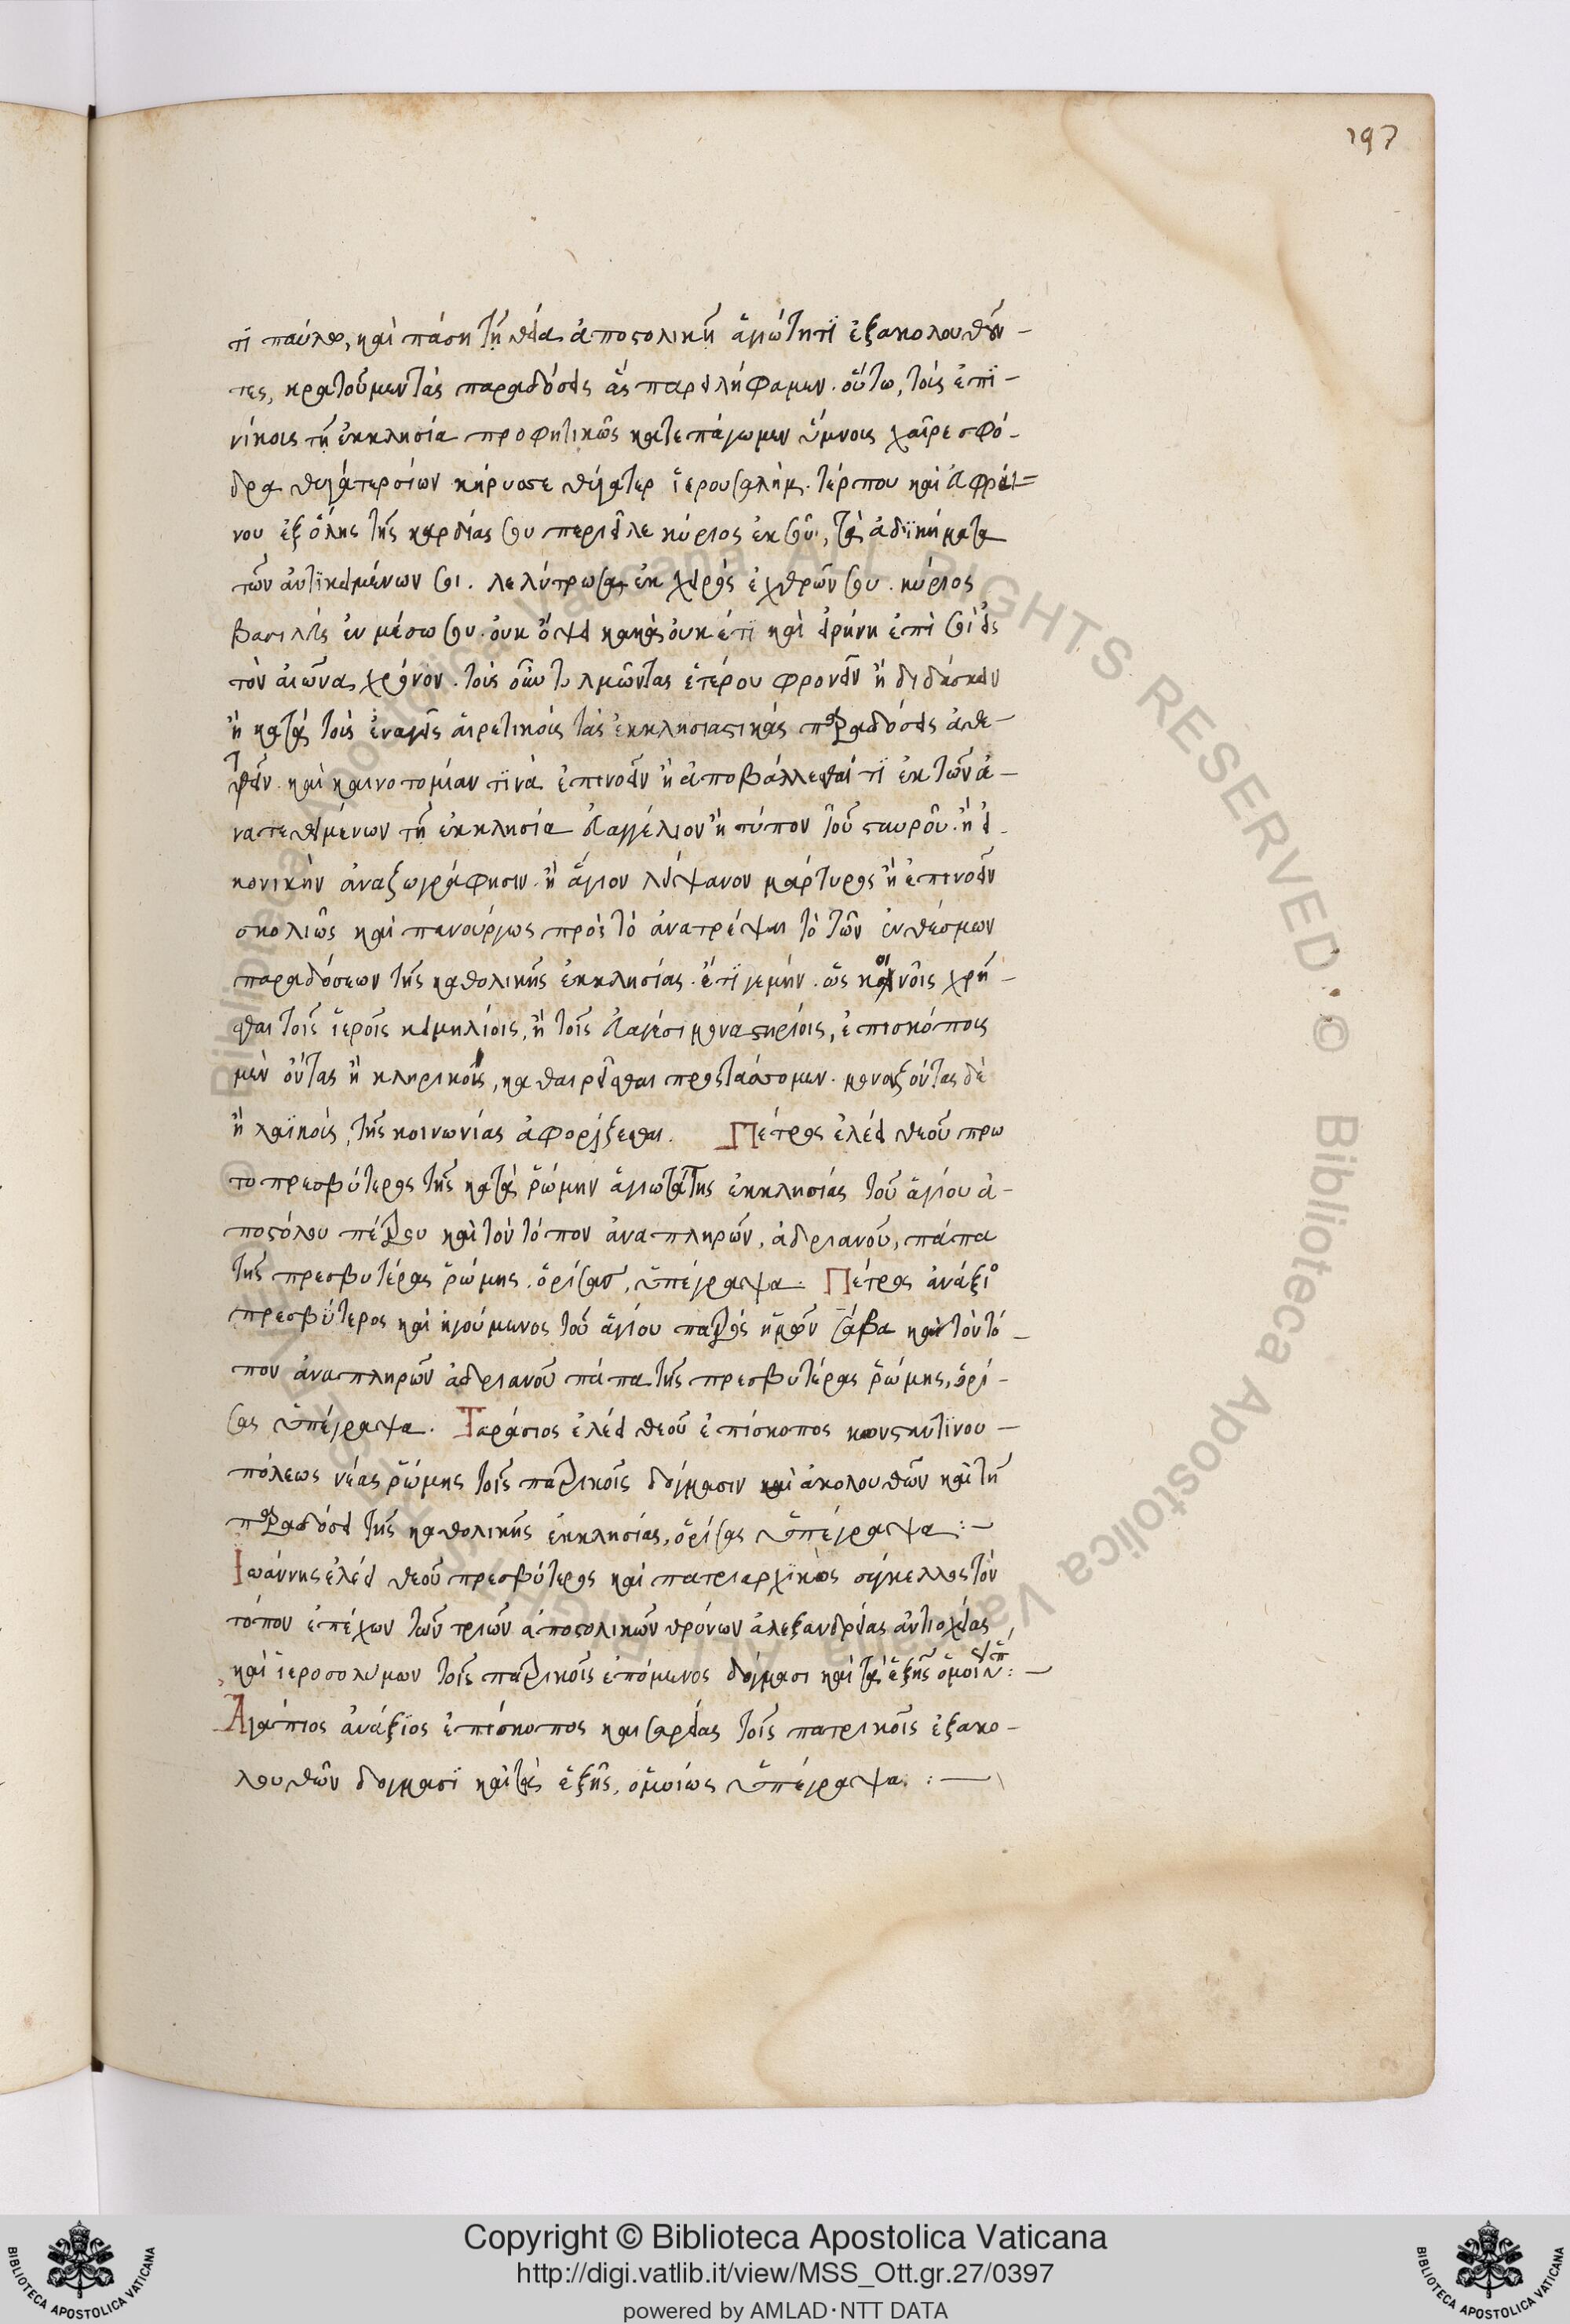 197
τι παύλω, καὶ πάση τῆ θεία ἀποστολικῆ ἁγιότητι ἐξακολουθοῦν-
τες, κρατοῦμεν τὰς παραδόσεις ἃς παρειλήφαμεν. οὕτω, τοῖς ἐπι-
νίκοις τῆ ἐκκλησία προφητικῶς κατεπάγωμεν ὕμνοις χαῖρε σφό-
δρα θυγάτερ σιών κήρυσσε θύγατερ ἱερουσαλήμ. τέρπου καὶ εὐφραί-
νου ἐξ ὅλης τῆς καρδίας σου περιεῖλε κύριος ἐκ σοῦ, τὰ ἀδικήματα
τῶν ἀντικειμένων σοι. λελύτρωσαι ἐκ χειρὸς ἐχθρῶν σου. κύριος
βασιλεὺς ἐν μέσω σου. οὐκ ὄψει κακὰ οὐκέτι καὶ εἰρήνη ἐπὶ σοὶ εἰς
τὸν αἰῶνα χρόνον. τοὺς οὖν τολμῶντας ἑτέρου φρονεῖν ἢ διδάσκειν
ἢ κατὰ τοὺς ἐναγεῖς αἱρετικοὺς τὰς ἐκκλησιαστικὰς παραδόσεις ἀθε-
τεῖν. καὶ καινοτομίαν τινὰ ἐπινοεῖν ἢ ἀποβάλλεσθαί τι ἐκ τῶν ἀ-
νατεθειμένων τῆ ἐκκλησία εὐαγγέλιον ἢ τύπον τοῦ σταυροῦ. ἢ εἰ-
κονικὴν ἀναζωγράφησιν. ἢ ἅγιον λείψανον μάρτυρος ἢ ἐπινοεῖν
σκολιῶς καὶ πανούργως πρὸς τὸ ἀνατρέψαι τὸ τῶν ἐνθέσμων
παραδόσεων τῆς καθολικῆς ἐκκλησίας. ἔτι γεμήν. ὡς κοινοῖς χρῆ-
σθαι τοῖς ἱεροῖς κειμηλίοις, ἢ τοῖς εὐαγέσι μοναστηρίοις, ἐπισκόπους
μὲν ὄντας ἢ κληρικοὺς, καθαιρεῖσθαι προστάσσομεν. μονάζοντας δὲ
ἢ λαϊκοὺς, τῆς κοινωνίας ἀφορίζεσθαι. Πέτρος ἐλέει θεοῦ πρω
το πρεσβύτερος τῆς κατὰ ῥώμην ἁγιωτάτης ἐκκλησίας τοῦ ἁγίου ἀ-
ποστόλου πέτρου καὶ τὸν τόπον ἀναπληρῶν, ἀδριανοῦ, πάπα
τῆς πρεσβυτέρας ῥώμης. ὁρίσας, ὑπέγραψα. Πέτρος ἀνάξιο
πρεσβύτερος καὶ ἡγούμενος τοῦ ἁγίου πατρὸς ἡμῶν σάβα καὶ τὸν τό-
πον ἀναπληρῶν ἀδριανοῦ πάπα τῆς πρεσβυτέρας ῥώμης, ὁρί-
σας ὑπέγραψα. Ταράσιος ἐλέει θεοῦ ἐπίσκοπος κωνσταντινου-
πόλεως νέας ῥώμης τοῖς πατρικοῖς δόγμασιν καὶ ἀκολουθῶν καὶ τῆ
παραδόσει τῆς καθολικῆς ἐκκλησίας, ὁρίσας ὑπέγραψα:-
Ἰωάννης ἐλέει θεοῦ πρεσβύτερος καὶ πατριαρχικὸς σύγκελλος τὸν
τόπον ἐπέχων τῶν τριῶν ἀποστολικῶν θρόνων ἀλεξανδρείας ἀντιοχείας
καὶ ἱεροσολύμων τοῖς πατρικοῖς ἑπόμενος δόγμασι καὶ τὰ ἑξῆς ὁμοί ὑπ:-
Ἀγάπιος ἀνάξιος ἐπίσκοπος καισαρείας τοῖς πατρικοῖς ἐξακο-
λουθῶν δόγμασι καὶ τὰ ἑξῆς, ὁμοίως ὑπέγραψα:-
© Biblioteca Apostolica Vaticana ALL RIGHTS RESERVED
Copyright © Biblioteca Apostolica Vaticana
http://digi.vatlib.it/view/MSS_Ott.gr.27/0397
powered by AMLAD·NTT DATA
BIBLIOTECA APOSTOLICA VATICANA
BIBLIOTECA APOSTOLICA VATICANA